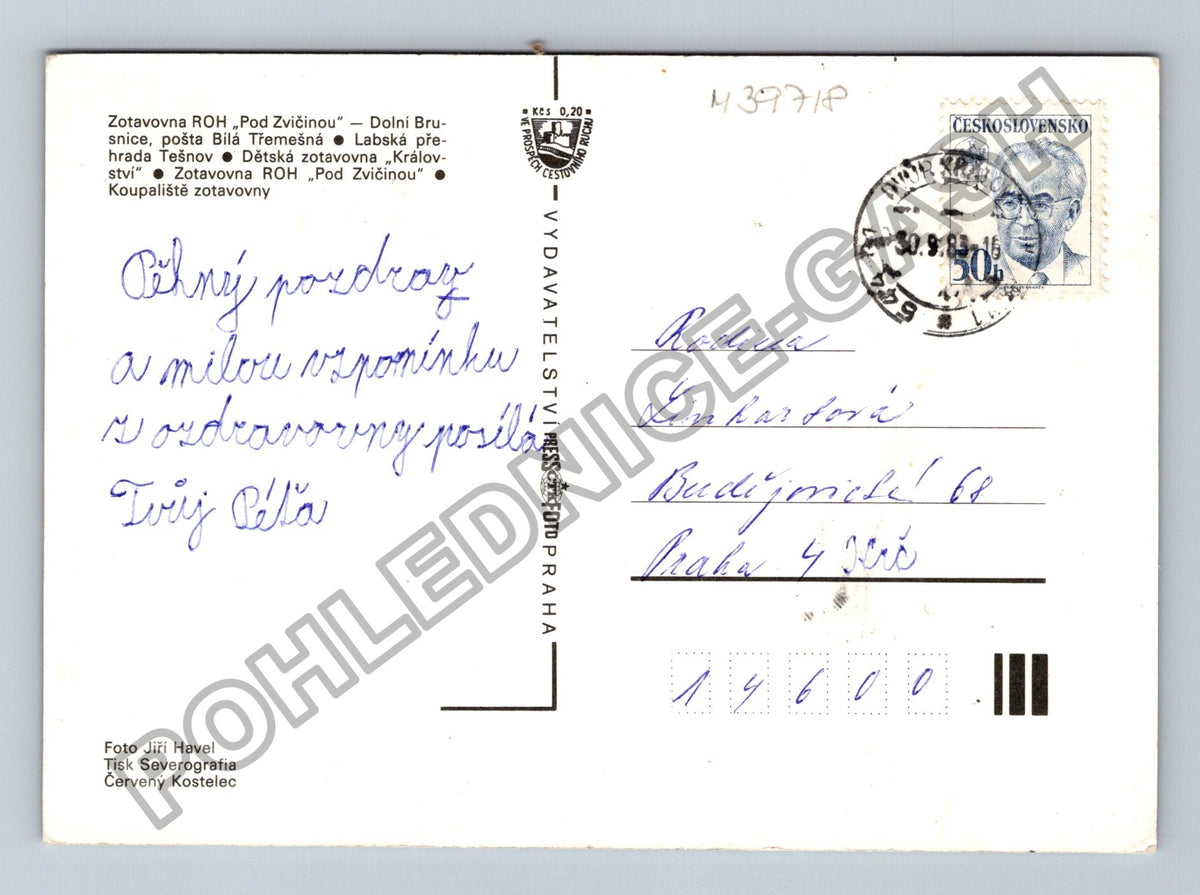 Zotavovna ROH „Pod Zvičinou“ — Dolní Bru-
snice, pošta Bílá Třemešná ● Labská pře-
hrada Tešnov ● Dětská zotavovna „Králov-
ství“ ● Zotavovna ROH „Pod Zvičinou“ ●
Koupaliště zotavovny
Pěhný pozdrav
a milou vzpomínku
z ozdravovny posílá
Tvůj Péťa
Foto Jiří Havel
Tisk Severografia
Červený Kostelec
Kčs 0,20
VE PROSPĚCH CESTOVNÍHO RUCHU
VYDAVATELSTVÍ PRESSFOTO PRAHA
ČTK
M 39718
ČESKOSLOVENSKO
50h
DVŮR KRÁLOVÉ
544 01
30.9.83-16
Rodina
Linhartová
Budějovická 68
Praha 4 Krč
14600
POHLEDNICE-GASH